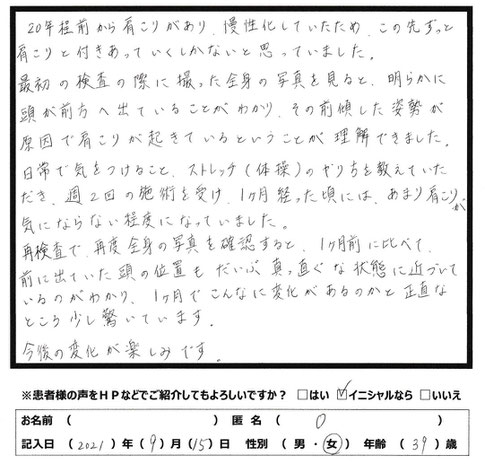 20年程前から肩こりがあり、慢性化していたため、この先ずっと
肩こりと付きあっていくしかないと思っていました。
最初の検査の際に撮った全身の写真を見ると、明らかに
頭が前方へ出ていることがわかり、その前傾した姿勢が
原因で肩こりが起きているということが理解できました。
日常で気をつけること、ストレッチ(体操)のやり方を教えていた
だき、週2回の施術を受け、1ヶ月経った頃には、あまり肩こりが
気にならない程度になっていました。
再検査で、再度全身の写真を確認すると、1ヶ月前に比べて、
前に出ていた頭の位置もだいぶ真っ直ぐな状態に近づいて
いるのがわかり、1ヶ月でこんなに変化があるのかと正直な
ところ少し驚いています。
今後の変化が楽しみです。
※患者様の声をHPなどでご紹介してもよろしいですか? □はい ☑イニシャルなら □いいえ
お名前 ( ) 匿名 ( O )
記入日 (2021) 年 (9) 月 (15) 日 性別 (男・女) 年齢 (39) 歳